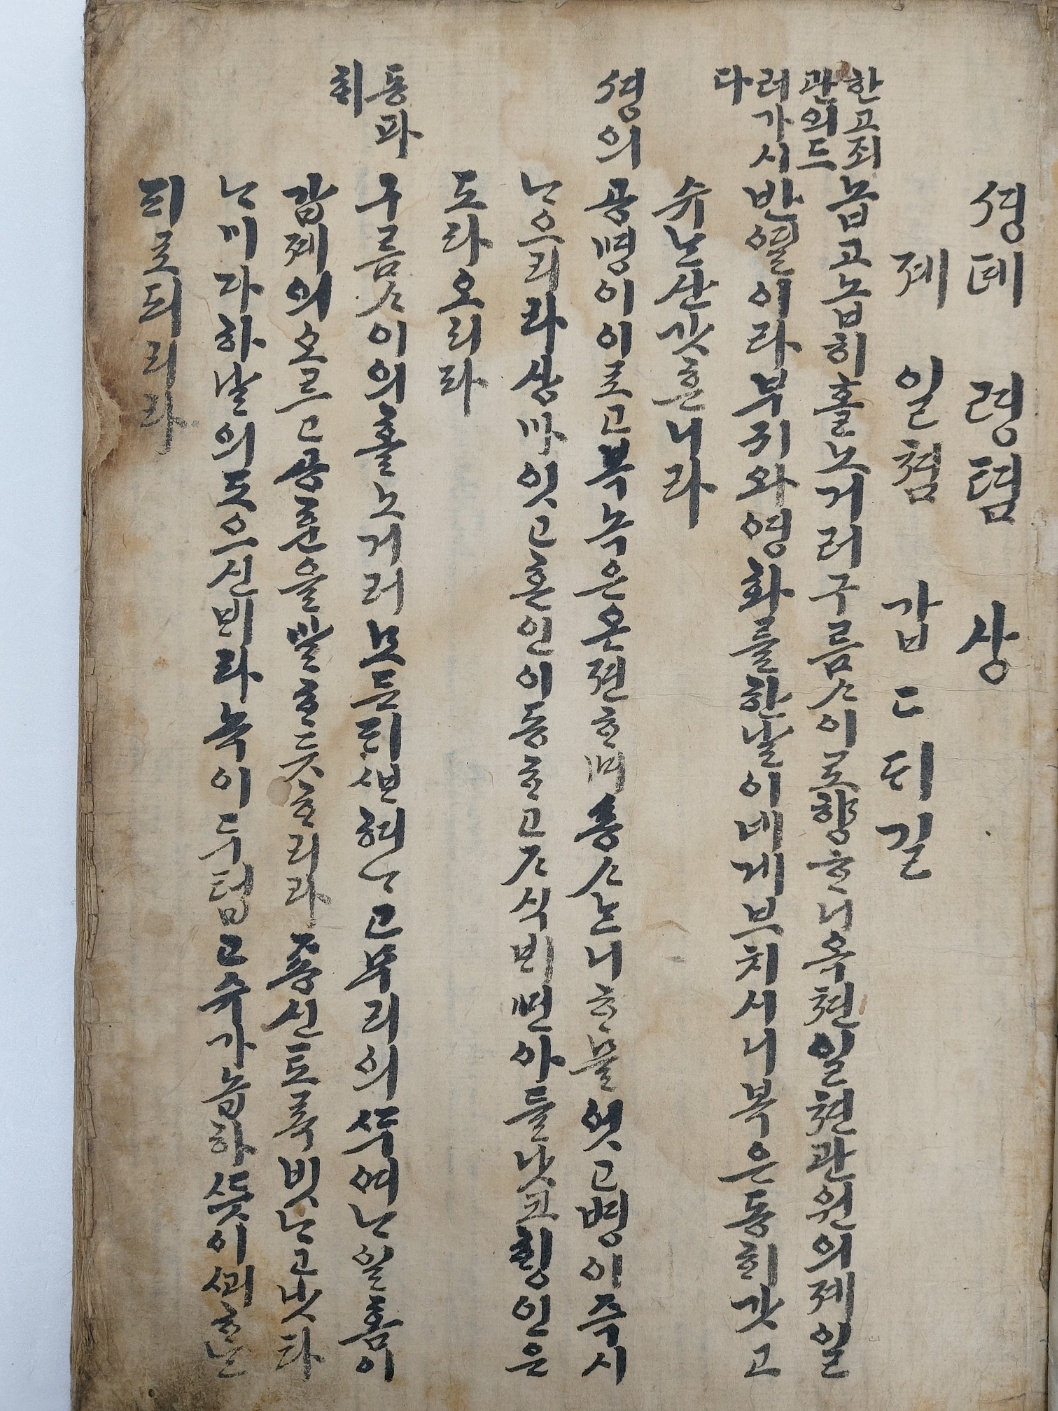 셩뎨 령텸 상
제 일쳠 갑ㄷ듸길
한고죄
관의드
려가시
다
놉고놉히홀노거러구름ᄉᆞ이로향ᄒᆞ니옥현일현관원의제일
반열이라부귀와영화를한날이네게브치시니복은동희갓고
슈난산갓흔니라
셩의
공명이이로고복녹은온젼ᄒᆞ며숑ᄉᆞ난니ᄒᆞ물엇고병이즉시
나으리라상마잇고혼인이동ᄒᆞ고ᄌᆞ식빌면아들낫코ᄒᆡᆼ인은
도라오리라
동파
ᄒᆡ
구름ᄉᆞ이의홀노거러모든ᄃᆡ션혀ᄂᆞ고무리의ᄲᅱ여난일홈이
갑졔의오르고공훈을발ᄒᆞ듯ᄒᆞ리라죵신토록빗나고낫타
나미다하날의도으신ᄇᆡ라녹이두텁고슈가놉하ᄯᅳᆺ이ᄭᅬᄒᆞᆫ
ᄃᆡ로되리라